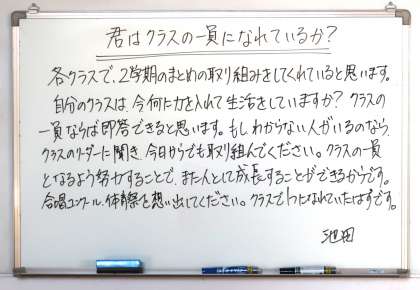 君はクラスの一員になれているか?
各クラスで、2学期のまとめの取り組みをしてくれていると思います。
自分のクラスは、今何に力を入れて生活をしていますか? クラスの
一員ならば即答できると思います。もしわからない人がいるのなら、
クラスのリーダーに聞き、今日からでも取り組んでください。クラスの一員
となるよう努力することで、また人として成長することができるからです。
合唱コンクール、体育祭を想い出してください。クラスで1つになれていたはずです。
池田